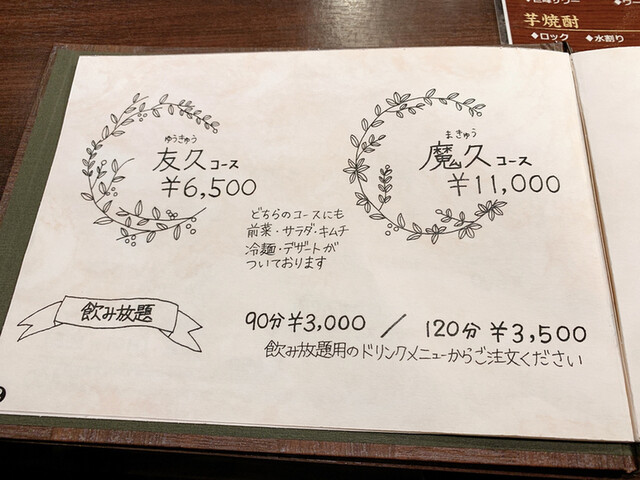 芋焼酎
◆ロック ◆水割り
ゆうきゅう
友久コース
¥6,500
まきゅう
魔久コース
¥11,000
どちらのコースにも
前菜・サラダ・キムチ
冷麺・デザートが
ついております
飲み放題
90分 ¥3,000 / 120分 ¥3,500
飲み放題用のドリンクメニューからご注文ください